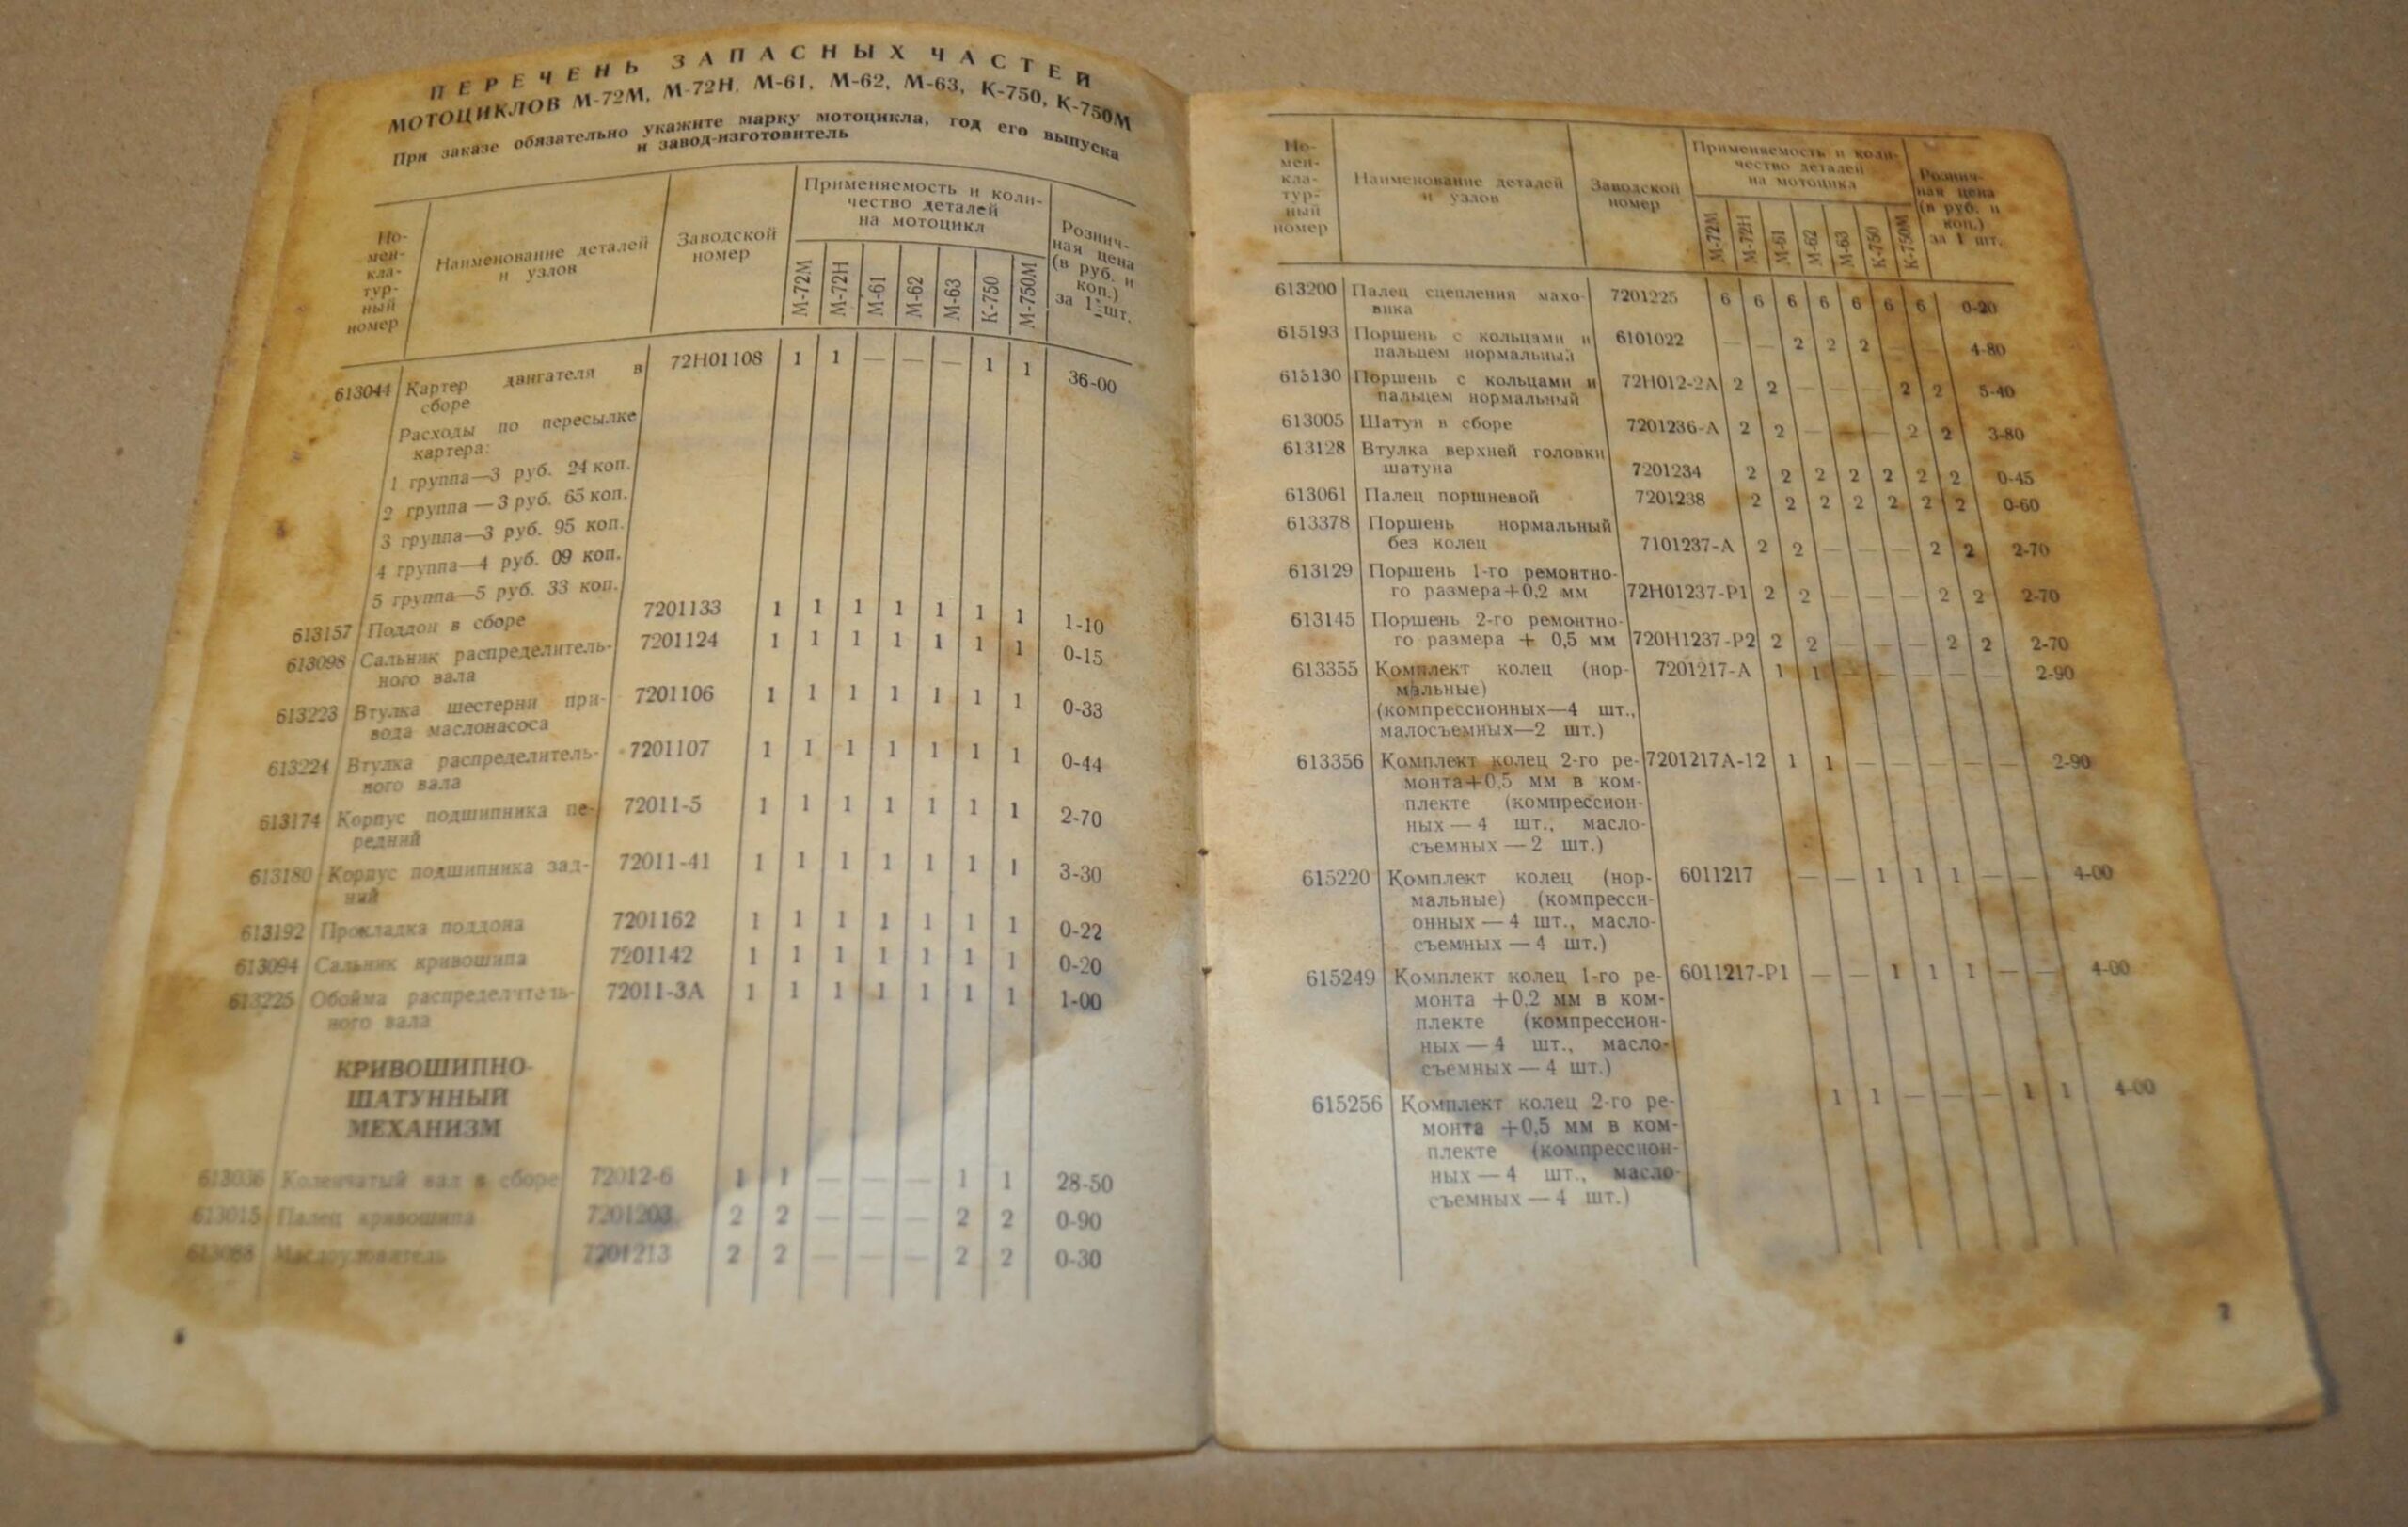 ПЕРЕЧЕНЬ ЗАПАСНЫХ ЧАСТЕЙ
МОТОЦИКЛОВ М-72М, М-72Н, М-61, М-62, М-63, К-750, К-750М
При заказе обязательно укажите марку мотоцикла, год его выпуска
и завод-изготовитель
Но-
мен-
кла-
тур-
ный
номер
Наименование деталей
и узлов
Заводской
номер
Применяемость и коли-
чество деталей
на мотоцикл
М-72М М-72Н М-61 М-62 М-63 К-750 М-750М
Рознич-
ная цена
(в руб. и
коп.)
за 1 шт.
613044 Картер двигателя в 72Н01108 1 1 — — — 1 1 36-00
сборе
Расходы по пересылке
картера:
1 группа—3 руб. 24 коп.
2 группа — 3 руб. 65 коп.
3 группа—3 руб. 95 коп.
4 группа—4 руб. 09 коп.
5 группа—5 руб. 33 коп.
613157 Поддон в сборе 7201133 1 1 1 1 1 1 1 1-10
613098 Сальник распределитель- 7201124 1 1 1 1 1 1 1 0-15
ного вала
613223 Втулка шестерни при- 7201106 1 1 1 1 1 1 1 0-33
вода маслонасоса
613224 Втулка распределитель- 7201107 1 1 1 1 1 1 1 0-44
ного вала
613174 Корпус подшипника пе- 72011-5 1 1 1 1 1 1 1 2-70
редний
613180 Корпус подшипника зад- 72011-41 1 1 1 1 1 1 1 3-30
ний
613192 Прокладка поддона 7201162 1 1 1 1 1 1 1 0-22
613094 Сальник кривошипа 7201142 1 1 1 1 1 1 1 0-20
613225 Обойма распределитель- 72011-3А 1 1 1 1 1 1 1 1-00
ного вала
КРИВОШИПНО-
ШАТУННЫЙ
МЕХАНИЗМ
613036 Коленчатый вал в сборе 72012-6 1 1 — — — 1 1 28-50
613015 Палец кривошипа 7201203 2 2 — — — 2 2 0-90
613088 Маслоуловитель 7201213 2 2 — — — 2 2 0-30
6
Но-
мен-
кла-
тур-
ный
номер
Наименование деталей
и узлов
Заводской
номер
Применяемость и коли-
чество деталей
на мотоцикл
М-72М М-72Н М-61 М-62 М-63 К-750 К-750М
Рознич-
ная цена
(в руб. и
коп.)
за 1 шт.
613200 Палец сцепления махо- 7201225 6 6 6 6 6 6 6 0-20
вика
615193 Поршень с кольцами и 6101022 — — 2 2 2 — — 4-80
пальцем нормальный
615130 Поршень с кольцами и 72Н012-2А 2 2 — — — 2 2 5-40
пальцем нормальный
613005 Шатун в сборе 7201236-А 2 2 — — — 2 2 3-80
613128 Втулка верхней головки
шатуна 7201234 2 2 2 2 2 2 2 0-45
613061 Палец поршневой 7201238 2 2 2 2 2 2 2 0-60
613378 Поршень нормальный
без колец 7101237-А 2 2 — — — 2 2 2-70
613129 Поршень 1-го ремонтно-
го размера+0,2 мм 72Н01237-Р1 2 2 — — — 2 2 2-70
613145 Поршень 2-го ремонтно-
го размера + 0,5 мм 720Н1237-Р2 2 2 — — — 2 2 2-70
613355 Комплект колец (нор- 7201217-А 1 1 — — — — — 2-90
мальные)
(компрессионных—4 шт.,
малосъемных—2 шт.)
613356 Комплект колец 2-го ре- 7201217А-12 1 1 — — — — — 2-90
монта+0,5 мм в ком-
плекте (компрессион-
ных — 4 шт., масло-
съемных — 2 шт.)
615220 Комплект колец (нор- 6011217 — — 1 1 1 — — 4-00
мальные) (компресси-
онных — 4 шт., масло-
съемных — 4 шт.)
615249 Комплект колец 1-го ре- 6011217-Р1 — — 1 1 1 — — 4-00
монта +0,2 мм в ком-
плекте (компрессион-
ных — 4 шт., масло-
съемных — 4 шт.)
615256 Комплект колец 2-го ре- 1 1 — — — 1 1 4-00
монта +0,5 мм в ком-
плекте (компрессион-
ных — 4 шт., масло-
съемных — 4 шт.)
7